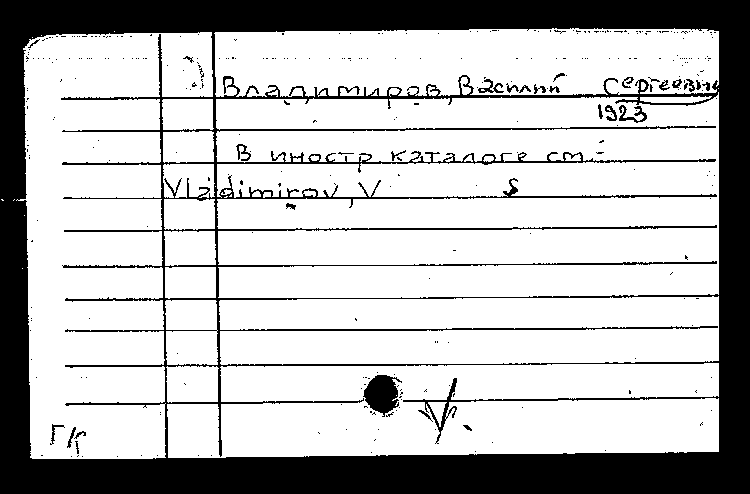 Владимиров, Василий Сергеевич
1923
В иностр каталоге см.:
Vladimirov, V S
ГК